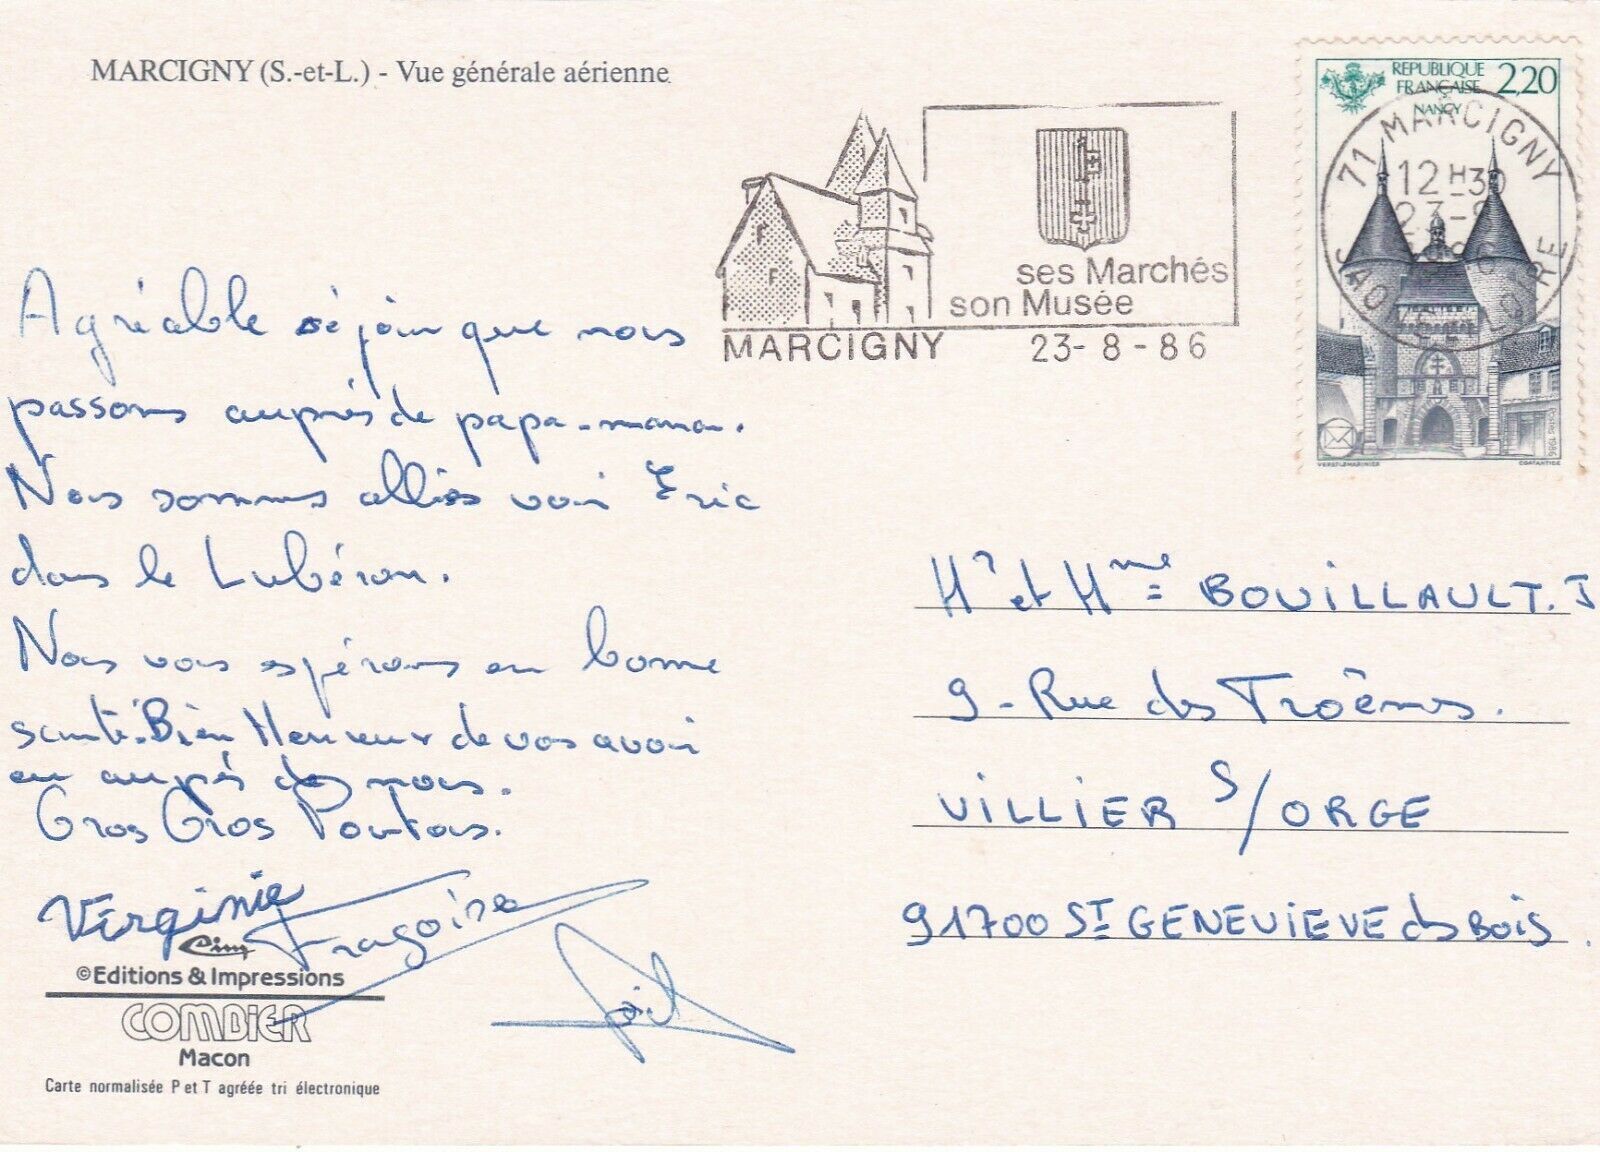 MARCIGNY (S.-et-L.) - Vue générale aérienne
REPUBLIQUE
FRANÇAISE
NANCY
2,20
71 MARCIGNY
12 H30
23-8
SAONE ET LOIRE
VERET-LEMARINIER
COMBET
ses Marchés
son Musée
MARCIGNY 23-8-86
Agréable séjour que nous
passons auprès de papa-maman.
Nous sommes allés voir Eric
dans le Lubéron.
Nous vous espérons en bonne
santé. Bien Heureux de vous avoir
eu auprés de nous.
Gros Gros Poutous.
Verginie
Françoise
Cim
©Editions & Impressions
COMBIER
Macon
Carte normalisée P et T agréée tri électronique
Mr et Mme BOUILLAULT. J
9 - Rue des Troênes.
VILLIER S/ORGE
91700 ST GENEVIEVE des BOIS.